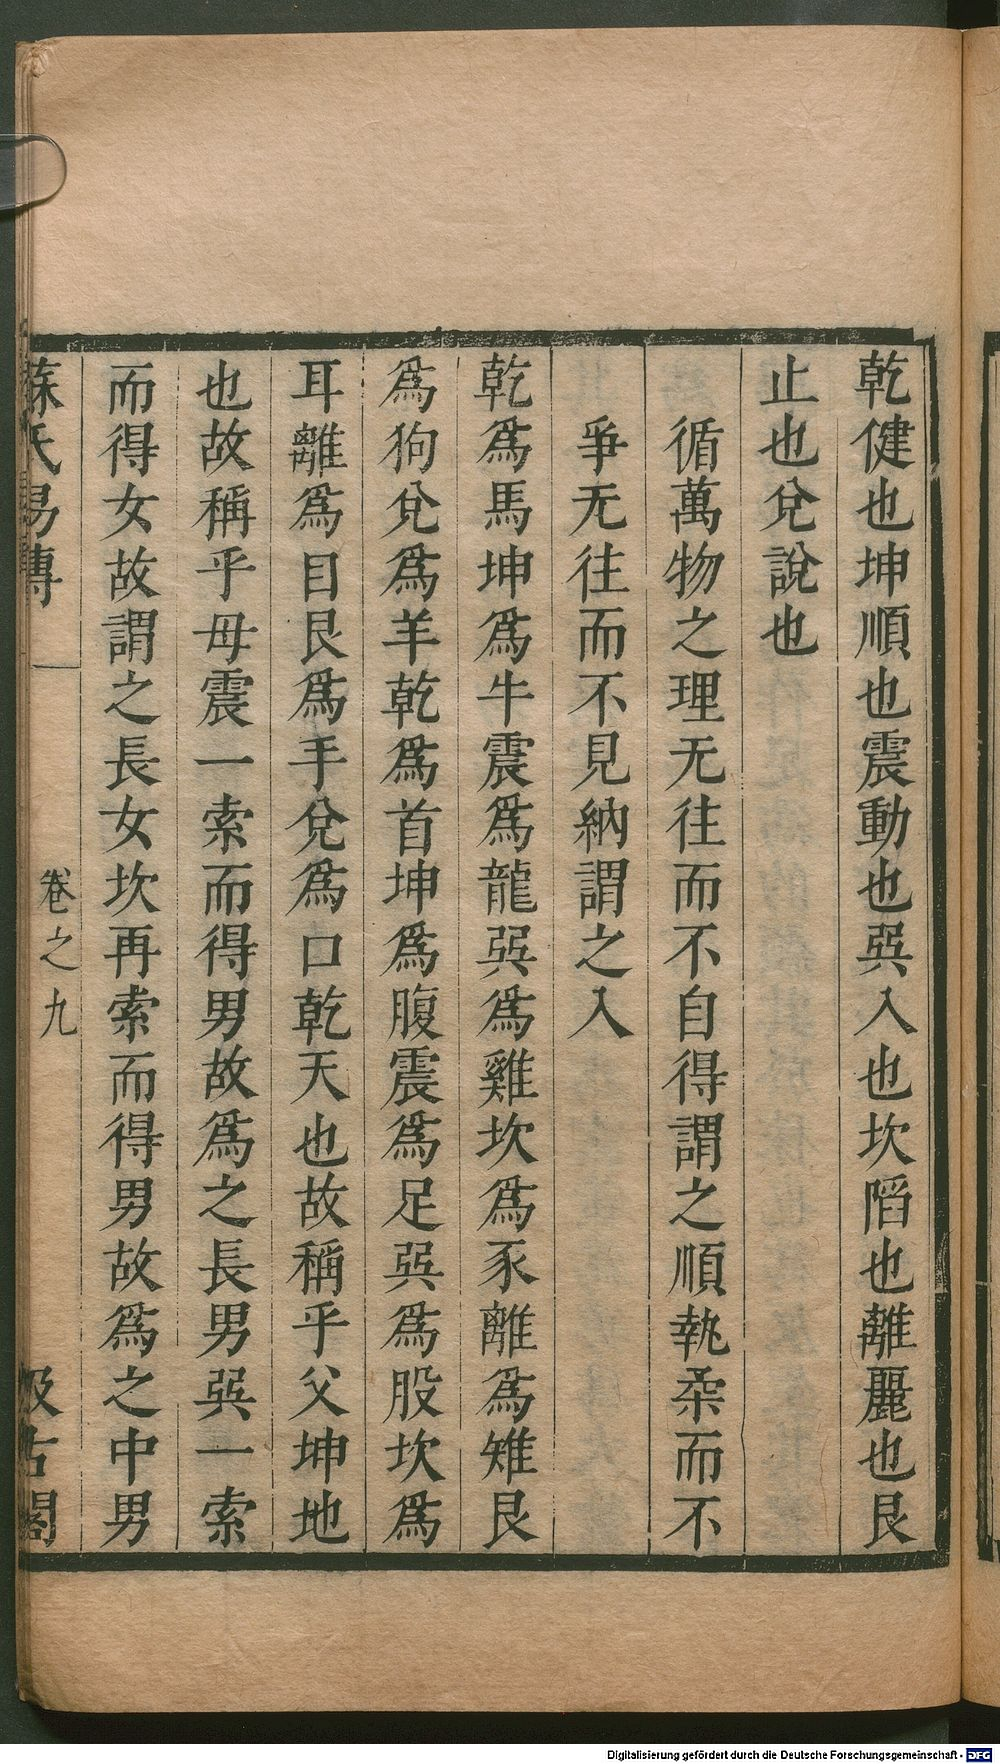 乾健也坤順也震動也巽入也坎陷也離麗也艮
止也兌說也
循萬物之理无往而不自得謂之順執柔而不
爭无往而不見納謂之入
乾爲馬坤爲牛震爲龍巽爲雞坎爲豕離爲雉艮
爲狗兌爲羊乾爲首坤爲腹震爲足巽爲股坎爲
耳離爲目艮爲手兌爲口乾天也故稱乎父坤地
也故稱乎母震一索而得男故爲之長男巽一索
而得女故謂之長女坎再索而得男故爲之中男
蘇氏易傳
卷之九
汲古閣
Digitalisierung gefördert durch die Deutsche Forschungsgemeinschaft - DFG